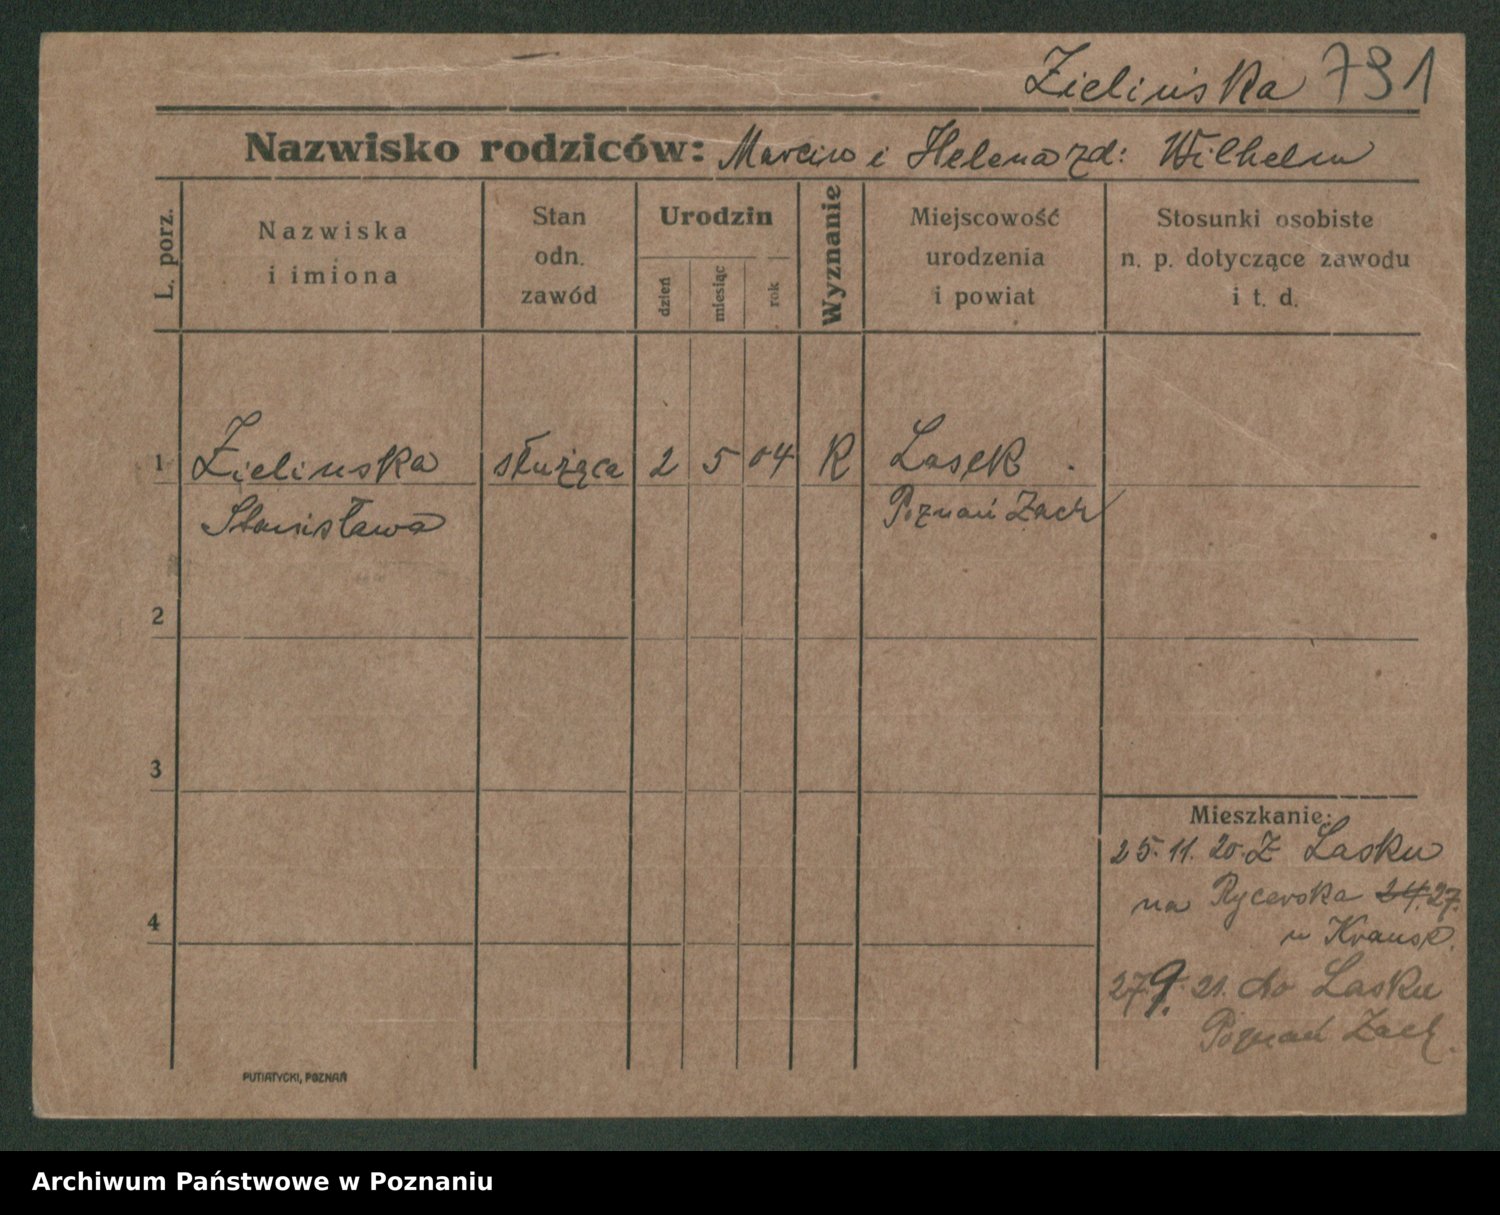 Zielińska 791
Nazwisko rodziców: Marcin i Helena zd: Wilhelm
L. porz.
Nazwiska
i imiona
Stan
odn.
zawód
Urodzin
dzień
miesiąc
rok
Wyznanie
Miejscowość
urodzenia
i powiat
Stosunki osobiste
n. p. dotyczące zawodu
i t. d.
1 Zielinska służąca 2 5 04 R Lasek .
Stanisława Poznań Zach
2
3
4
Mieszkanie:
25. 11. 20. Z Lasku
na Rycerska 24. 27.
u Kraus
27. 9. 21. do Lasku
Poznań Zach.
PUTIATYCKI, POZNAŃ
Archiwum Państwowe w Poznaniu